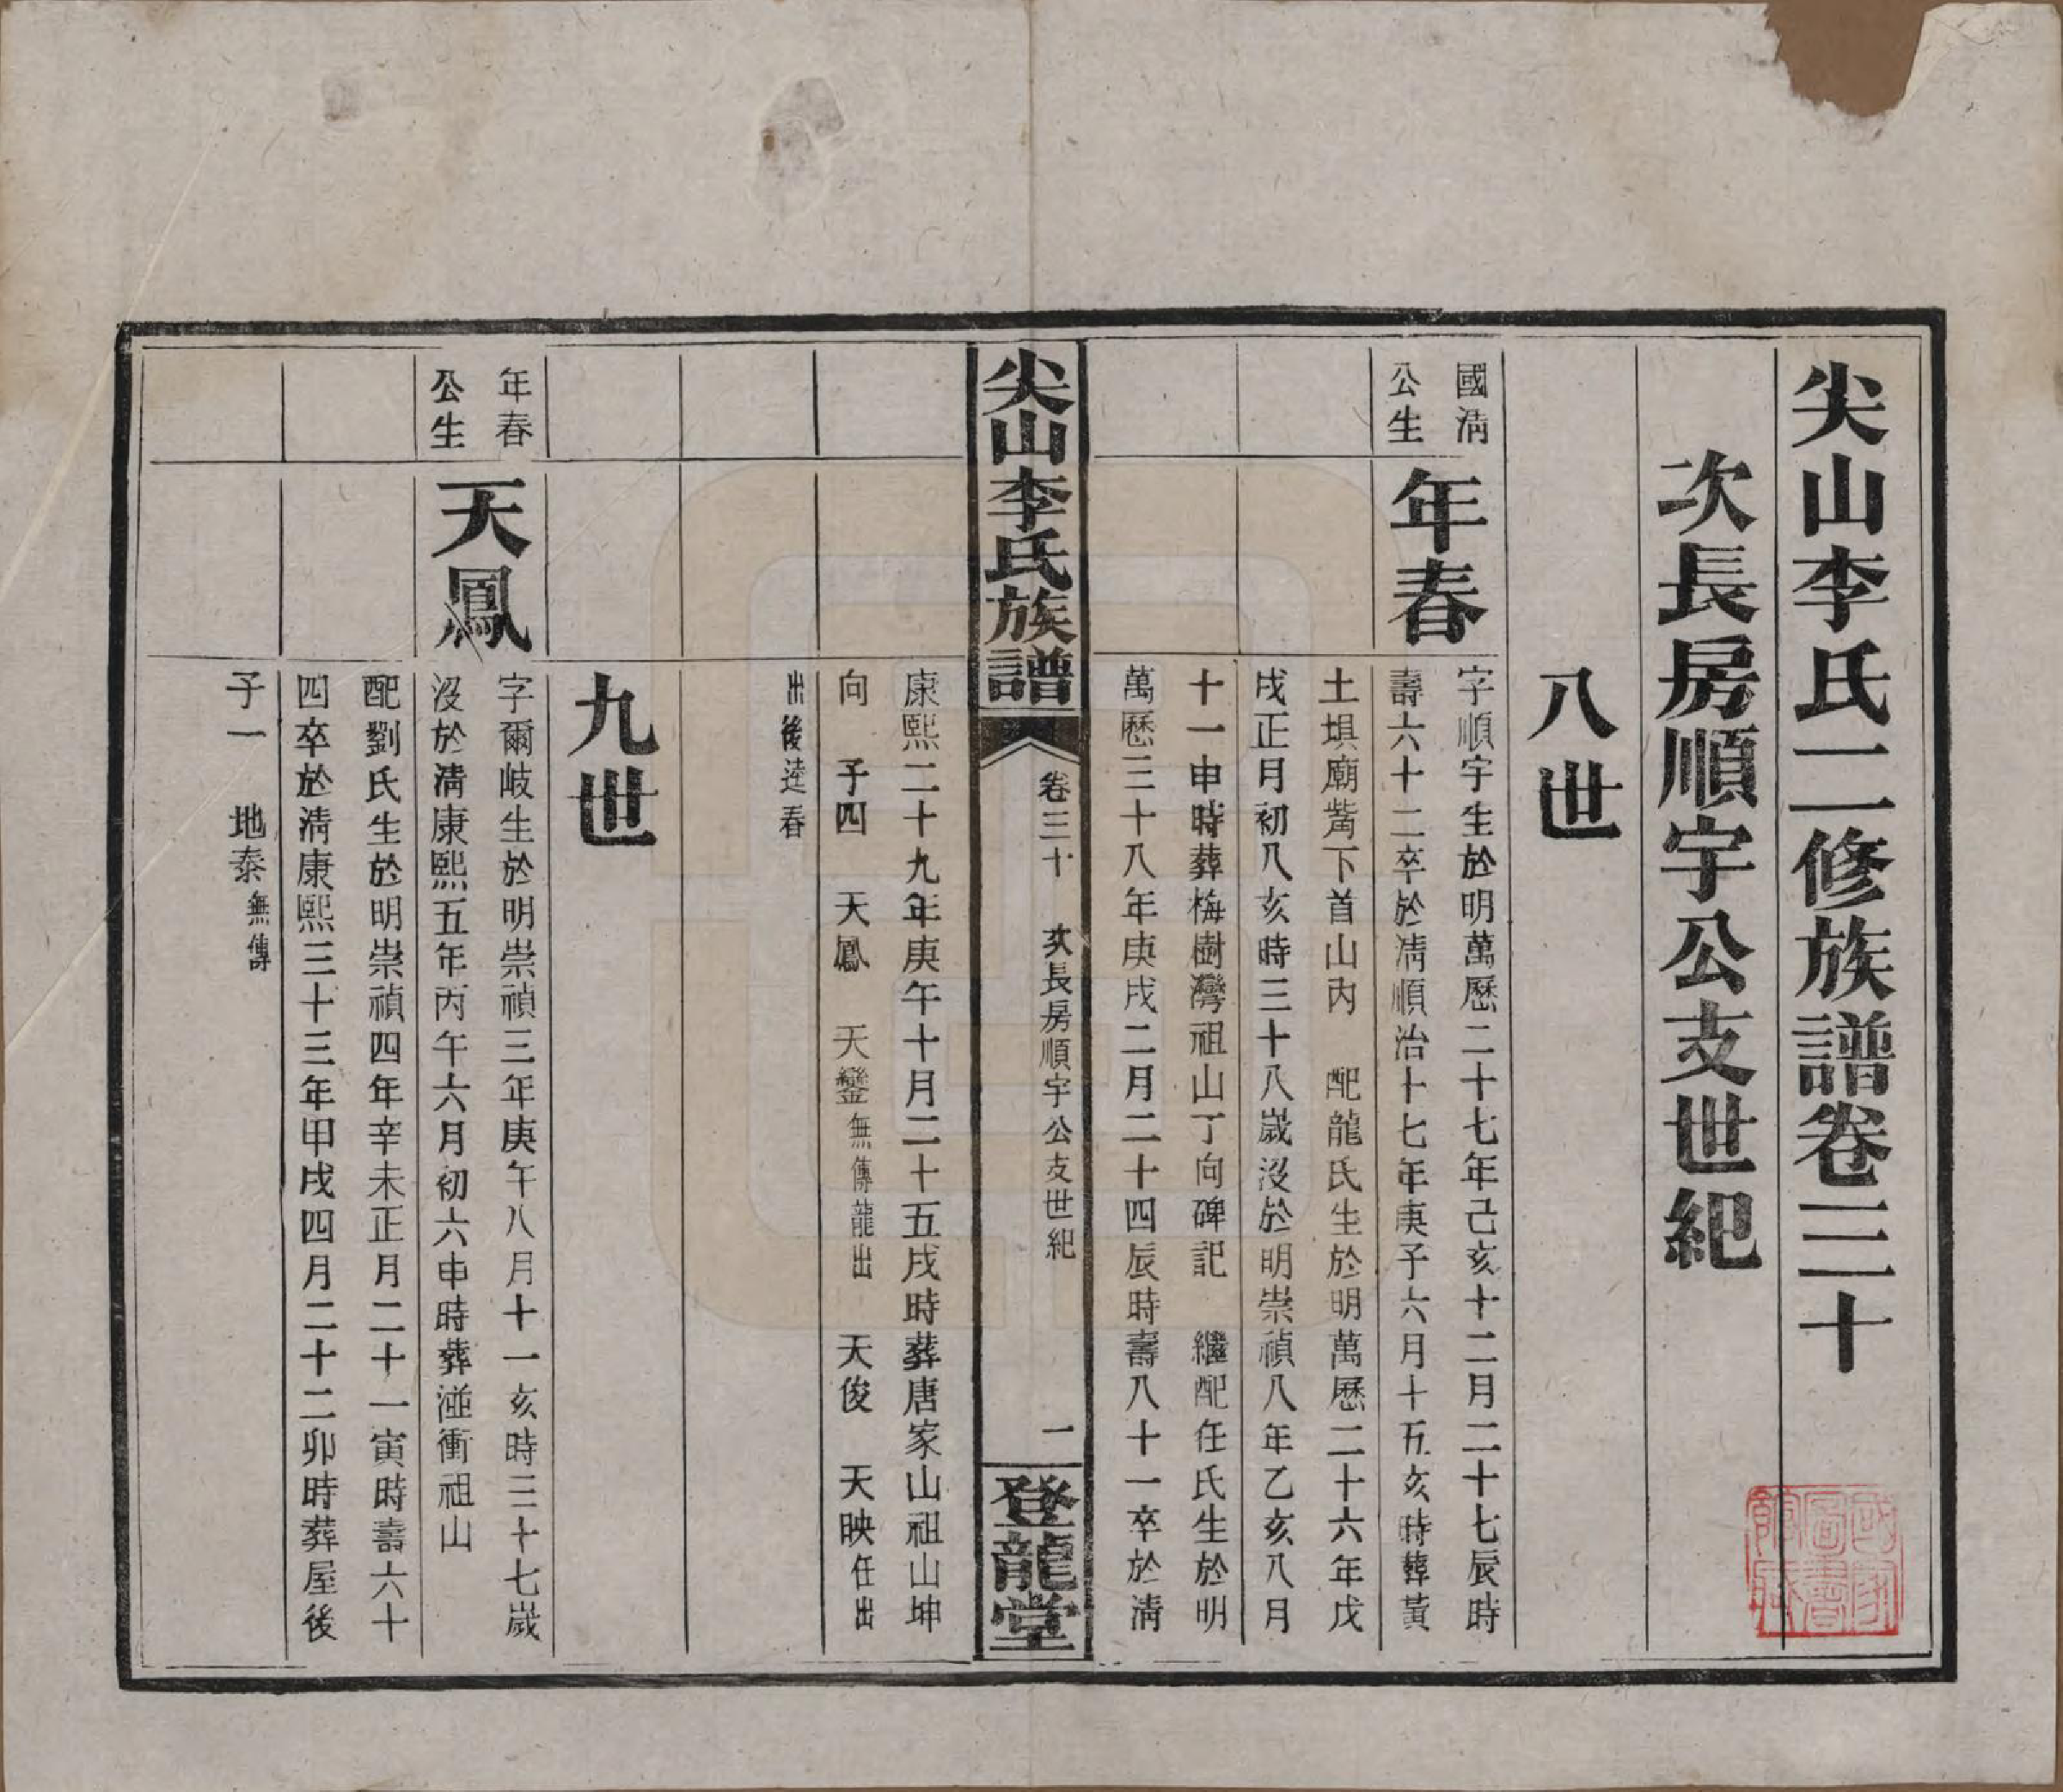 尖山李氏二修族譜卷三十
次長房順宇公支世紀
八世
國淸
公生
年春
字順宇生於明萬曆二十七年己亥十二月二十七辰時
壽六十二卒於淸順治十七年庚子六月十五亥時葬黃
土塅廟嘴下首山內 配龍氏生於明萬曆二十六年戊
戌正月初八亥時三十八歲沒於明崇禎八年乙亥八月
十一申時葬梅樹灣祖山丁向碑記 繼配任氏生於明
萬曆三十八年庚戌二月二十四辰時壽八十一卒於淸
尖山李氏族譜
卷三十 次長房順宇公支世紀
一
登龍堂
康熙二十九年庚午十月二十五戌時葬唐家山祖山坤
向 子四 天鳳 天鑾無傳龍出 天俊 天映任出
出後逵春
九世
年春
公生
天鳳
字爾岐生於明崇禎三年庚午八月十一亥時三十七歲
沒於淸康熙五年丙午六月初六申時葬湴衝祖山
配劉氏生於明崇禎四年辛未正月二十一寅時壽六十
四卒於淸康熙三十三年甲戌四月二十二卯時葬屋後
子一 地泰無傳
國家圖書館藏